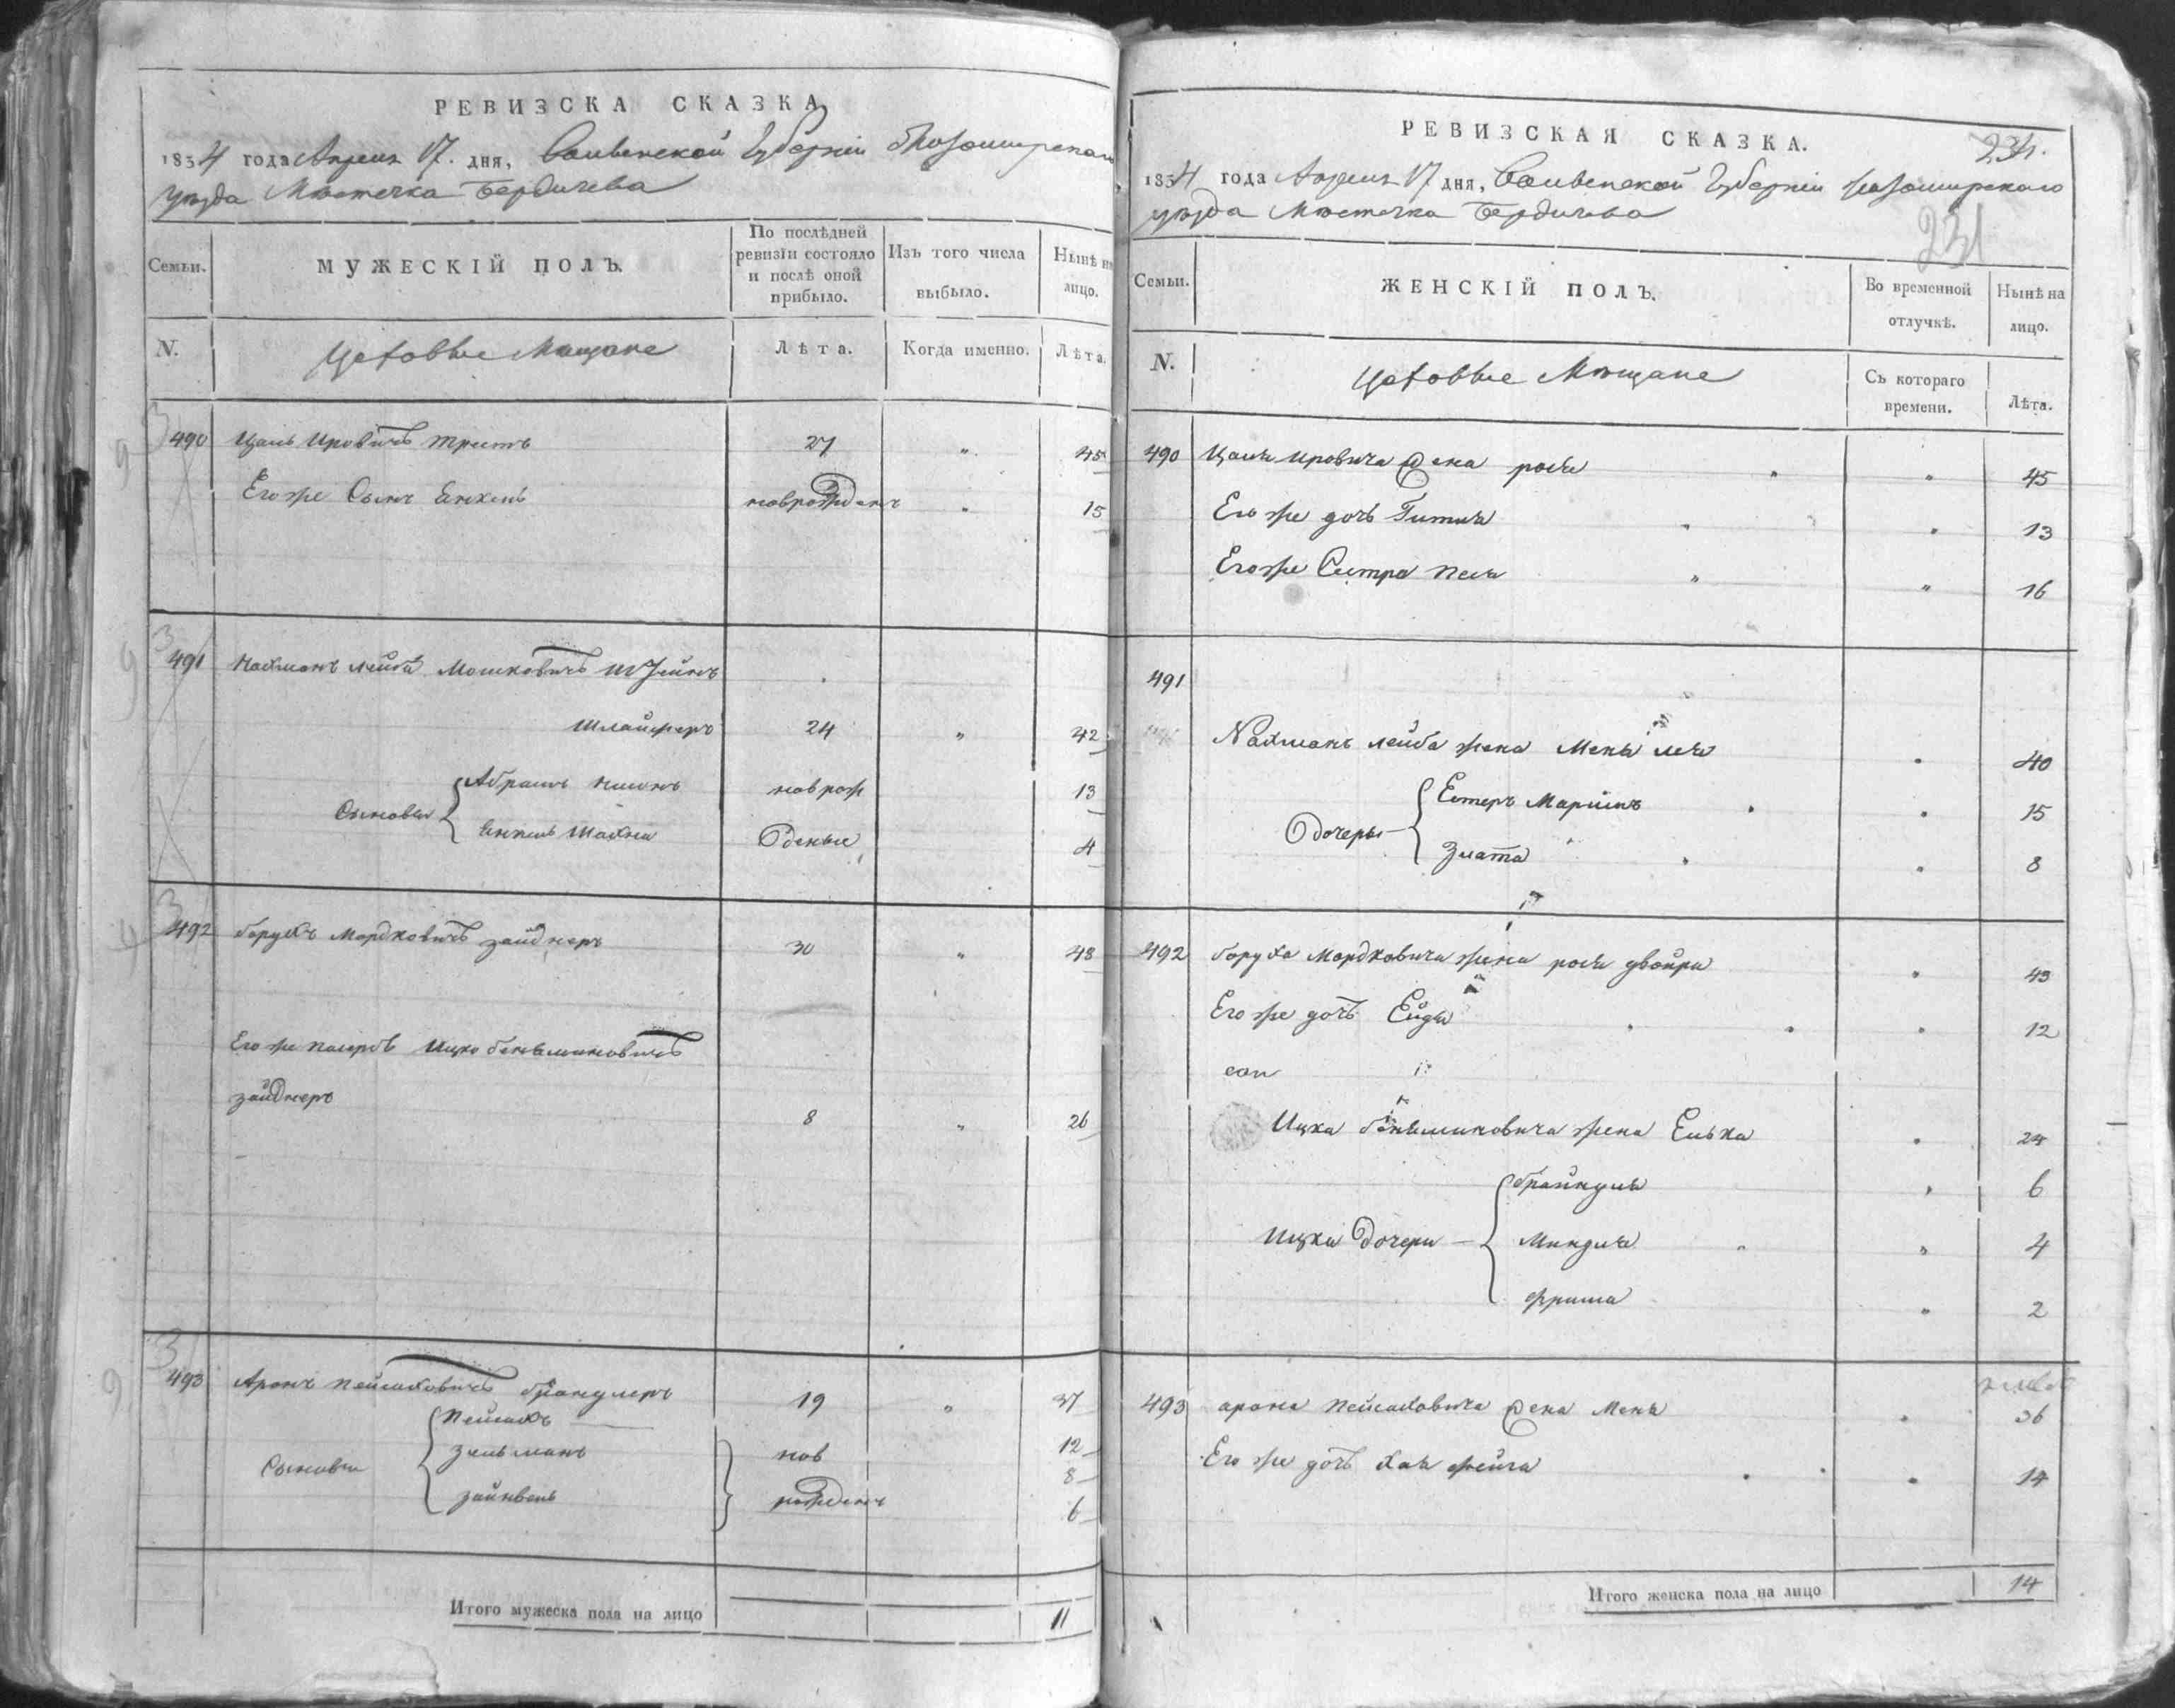 РЕВИЗСКА СКАЗКА
1854 года Апреля 17. дня, Волинской Губерніи Житомирскаго
уезда Местечка Бердичева
Семьи.
МУЖЕСКІЙ ПОЛЪ.
По послѣдней
ревизіи состояло
и послѣ оной
прибыло.
Изъ того числа
выбыло.
Нынѣ на
лицо.
N.
Цеховые Мещане
Лѣта.
Когда именно.
Лѣта.
490 27 " 45
Его же Сынъ Янкель новрожденъ " 15
491 Нахманъ лейба Мошковичъ
Шлайферъ 24 " 42
Сыновья Абрамъ новрож 13
Янкель Шахна 4
492 борухъ Мордковичъ зайднеръ 30 " 48
Его же Ицко беньяминовичъ
зайднеръ 8 " 26
493 Аронъ Пейсаховичъ 19 " 37
Пейсахъ 12
Сыновья зельманъ нов 8
зайнвель рожденъ 6
Итого мужеска пола на лицо 11
РЕВИЗСКАЯ СКАЗКА.
231
1854 года Апреля 17 дня, Волинской Губерніи Житомирскаго
уезда Местечка Бердичева
231
Семьи.
ЖЕНСКІЙ ПОЛЪ.
Во временной
отлучкѣ.
Нынѣ на
лицо.
N.
Цеховые Мещане
Съ котораго
времени.
Лѣта.
490 жена " 45
Его же дочь Гитля " 13
Его же Сестра Песя " 16
491
Нахмана лейба жена 40
Дочеры Естеръ Маріимъ 15
Злата 8
492 боруха Мордковича жена двойра 43
Его же дочь Ейдя 12
Ицка беньяминовича жена Елька 24
брайндля 6
Ицки Дочери Миндля 4
фрима 2
493 арона Пейсаховича жена Меня 36
Его же дочь хая фейга 14
Итого женска пола на лицо 14